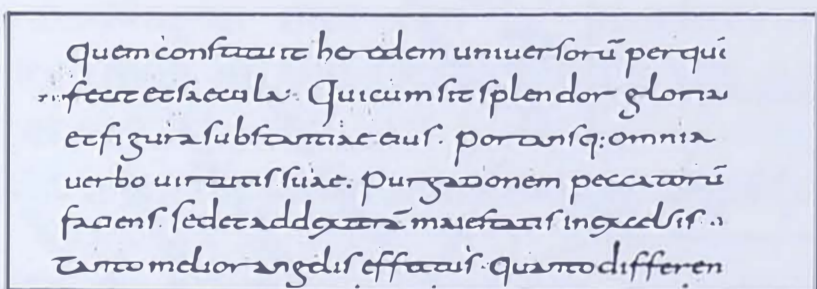 quem constituit heredem uniuersorū per qui
fecit et saecula. Qui cum sit splendor gloria
et figura substantiae eius. portansq: omnia
uerbo uirtutis suae. purgationem peccatorū
faciens. sedet ad dexterā maiestatis in excelsis.
tanto melior angelis effectus. quanto differen